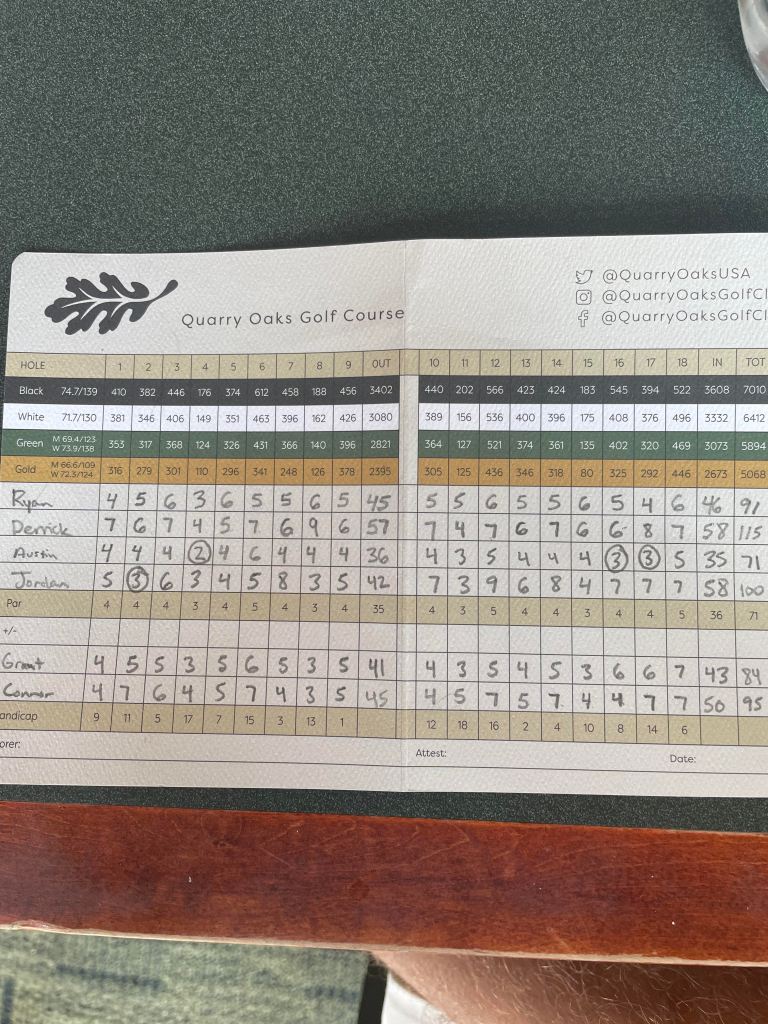 @QuarryOaksUSA
@QuarryOaksGolfCl
Quarry Oaks Golf Course
@QuarryOaksGolfCl
HOLE 1 2 3 4 5 6 7 8 9 OUT 10 11 12 13 14 15 16 17 18 IN TOT
Black 74.7/139 410 382 446 176 374 612 458 188 456 3402 440 202 566 423 424 183 545 394 522 3608 7010
White 71.7/130 381 346 406 149 351 463 396 162 426 3080 389 156 536 400 396 175 408 376 496 3332 6412
Green M 69.4/123 W 73.9/138 353 317 368 124 326 431 366 140 396 2821 364 127 521 374 361 135 402 320 469 3073 5894
Gold M 66.6/109 W 72.3/124 316 279 301 110 296 341 248 126 378 2395 305 125 436 346 318 80 325 292 446 2673 5068
Ryan 4 5 6 3 6 5 5 6 5 45 5 5 6 5 5 6 5 4 6 46 91
Derrick 7 6 7 4 5 7 6 9 6 57 7 4 7 6 7 6 6 8 7 58 115
Austin 4 4 4 2 4 6 4 4 4 36 4 3 5 4 4 4 3 3 5 35 71
Jordan 5 3 6 3 4 5 8 3 5 42 7 3 9 6 8 4 7 7 7 58 100
Par 4 4 4 3 4 5 4 3 4 35 4 3 5 4 4 3 4 4 5 36 71
+/-
Grant 4 5 5 3 5 6 5 3 5 41 4 3 5 4 5 3 6 6 7 43 84
Connor 4 7 6 4 5 7 4 3 5 45 4 5 7 5 7 4 4 7 7 50 95
andicap 9 11 5 17 7 15 3 13 1 12 18 16 2 4 10 8 14 6
orer: Attest: Date: